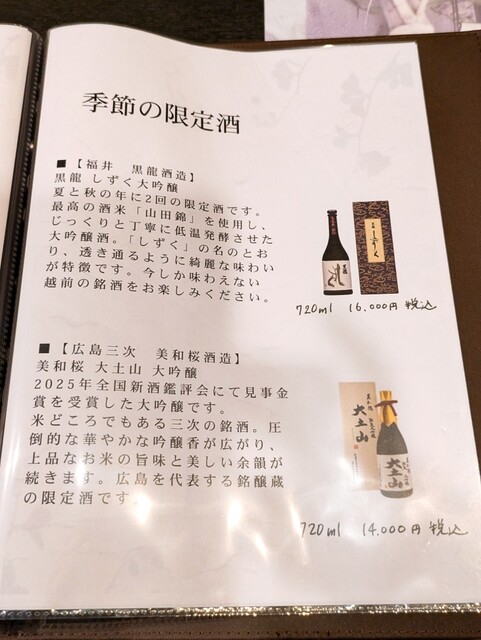 季節の限定酒
■【福井　黒龍酒造】
黒龍 しずく大吟醸
夏と秋の年に2回の限定酒です。
最高の酒米「山田錦」を使用し、
じっくりと丁寧に低温発酵させた
大吟醸酒。「しずく」の名のとお
り、透き通るように綺麗な味わい
が特徴です。今しか味わえない
越前の銘酒をお楽しみください。
しずく
720ml 16,000円 税込
■【広島三次　美和桜酒造】
美和桜 大土山 大吟醸
2025年全国新酒鑑評会にて見事金
賞を受賞した大吟醸です。
米どころでもある三次の銘酒。圧
倒的な華やかな吟醸香が広がり、
上品なお米の旨味と美しい余韻が
続きます。広島を代表する銘醸蔵
の限定酒です。
大土山
大土山
720ml 14,000円 税込